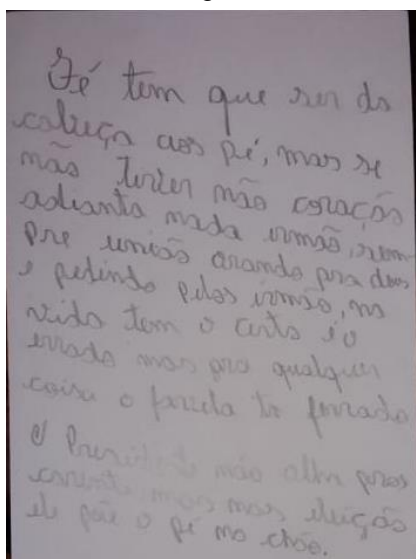 Fé tem que ser da
cabeça aos pé, mas se
não tiver não coração
adianta nada irmão, sem
pre união orando pra deus
e pedindo pelos irmão, na
vida tem o certo i o
errado mas pra qualquer
coisa o farda ta forrado
O Presidente não olha pras
mas mas eleição
ele põe o pé no chão.